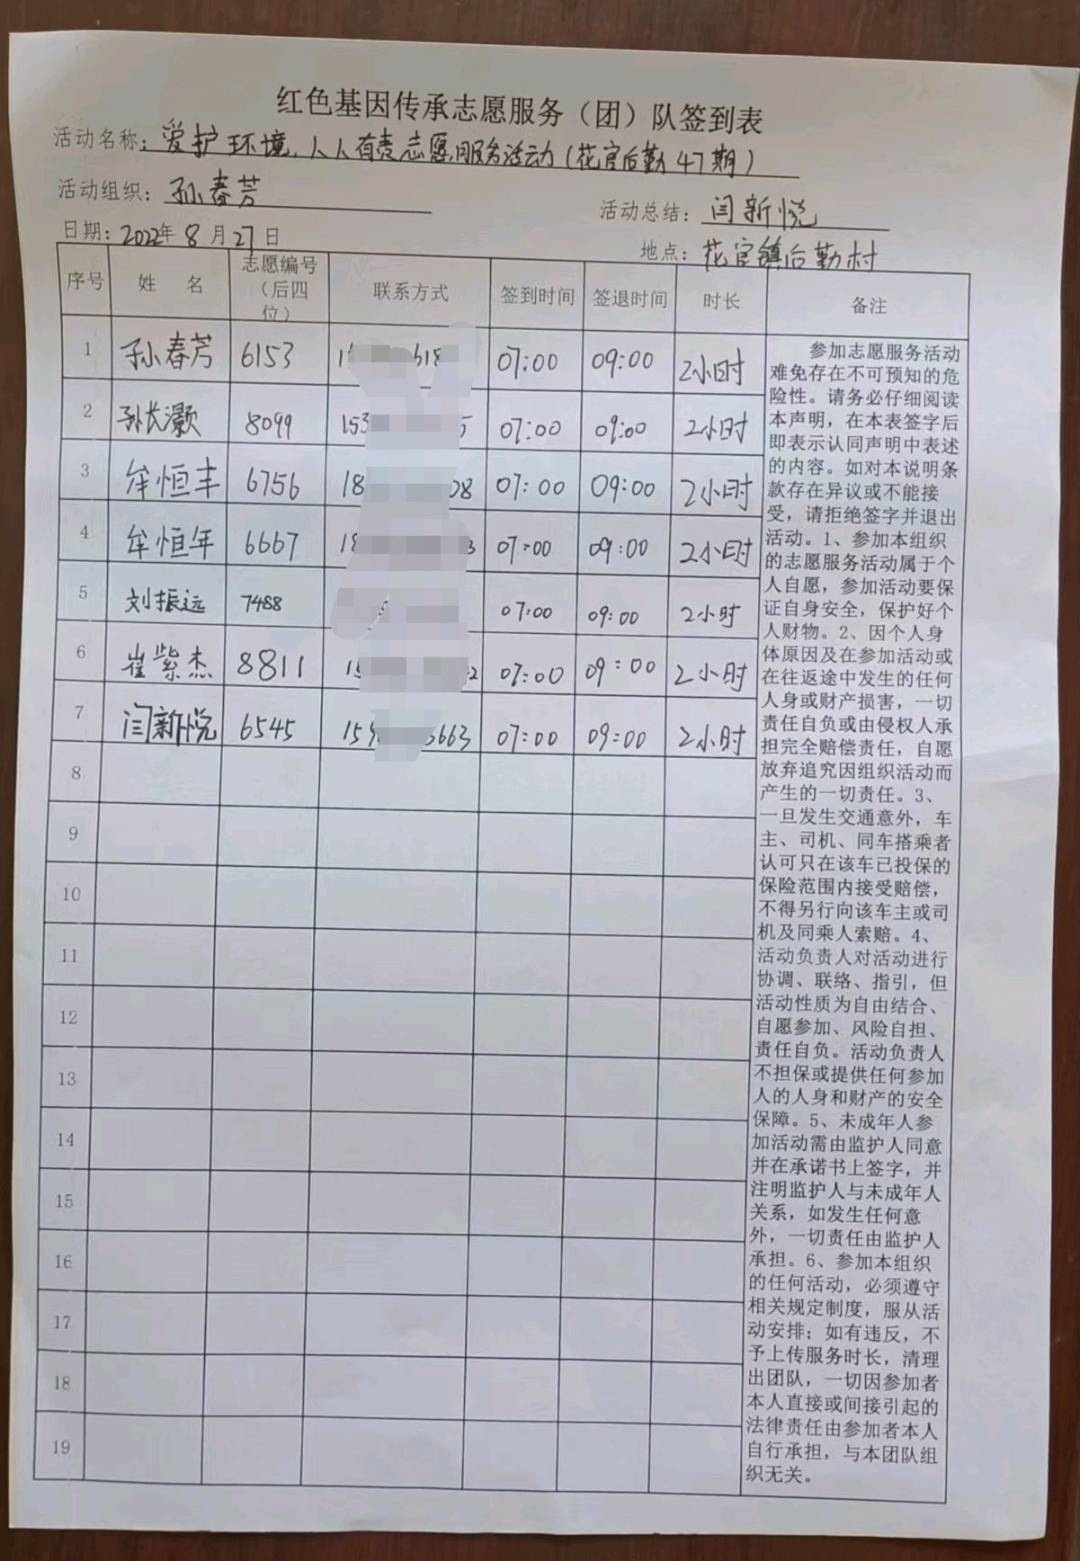 红色基因传承志愿服务（团）队签到表
活动名称：爱护环境，人人有责志愿服务活动（花官后勤47期）
活动组织：孙春芳
活动总结：闫新悦
日期：2022年8月27日
地点：花官镇后勤村
序号 姓 名 志愿编号（后四位） 联系方式 签到时间 签退时间 时长 备注
1 孙春芳 6153 1 618 07:00 09:00 2小时
2 孙长灏 8099 153 5 07:00 09:00 2小时
3 牟恒丰 6756 18 08 07:00 09:00 2小时
4 牟恒年 6667 18 3 07:00 09:00 2小时
5 刘振远 7488 07:00 09:00 2小时
6 崔紫杰 8811 15 2 07:00 09:00 2小时
7 闫新悦 6545 15 3663 07:00 09:00 2小时
8
9
10
11
12
13
14
15
16
17
18
19
参加志愿服务活动
难免存在不可预知的危
险性。请务必仔细阅读
本声明，在本表签字后
即表示认同声明中表述
的内容。如对本说明条
款存在异议或不能接
受，请拒绝签字并退出
活动。1、参加本组织
的志愿服务活动属于个
人自愿，参加活动要保
证自身安全，保护好个
人财物。2、因个人身
体原因及在参加活动或
在往返途中发生的任何
人身或财产损害，一切
责任自负或由侵权人承
担完全赔偿责任，自愿
放弃追究因组织活动而
产生的一切责任。3、
一旦发生交通意外，车
主、司机、同车搭乘者
认可只在该车已投保的
保险范围内接受赔偿，
不得另行向该车主或司
机及同乘人索赔。4、
活动负责人对活动进行
协调、联络、指引，但
活动性质为自由结合、
自愿参加、风险自担、
责任自负。活动负责人
不担保或提供任何参加
人的人身和财产的安全
保障。5、未成年人参
加活动需由监护人同意
并在承诺书上签字，并
注明监护人与未成年人
关系，如发生任何意
外，一切责任由监护人
承担。6、参加本组织
的任何活动，必须遵守
相关规定制度，服从活
动安排；如有违反，不
予上传服务时长，清理
出团队，一切因参加者
本人直接或间接引起的
法律责任由参加者本人
自行承担，与本团队组
织无关。